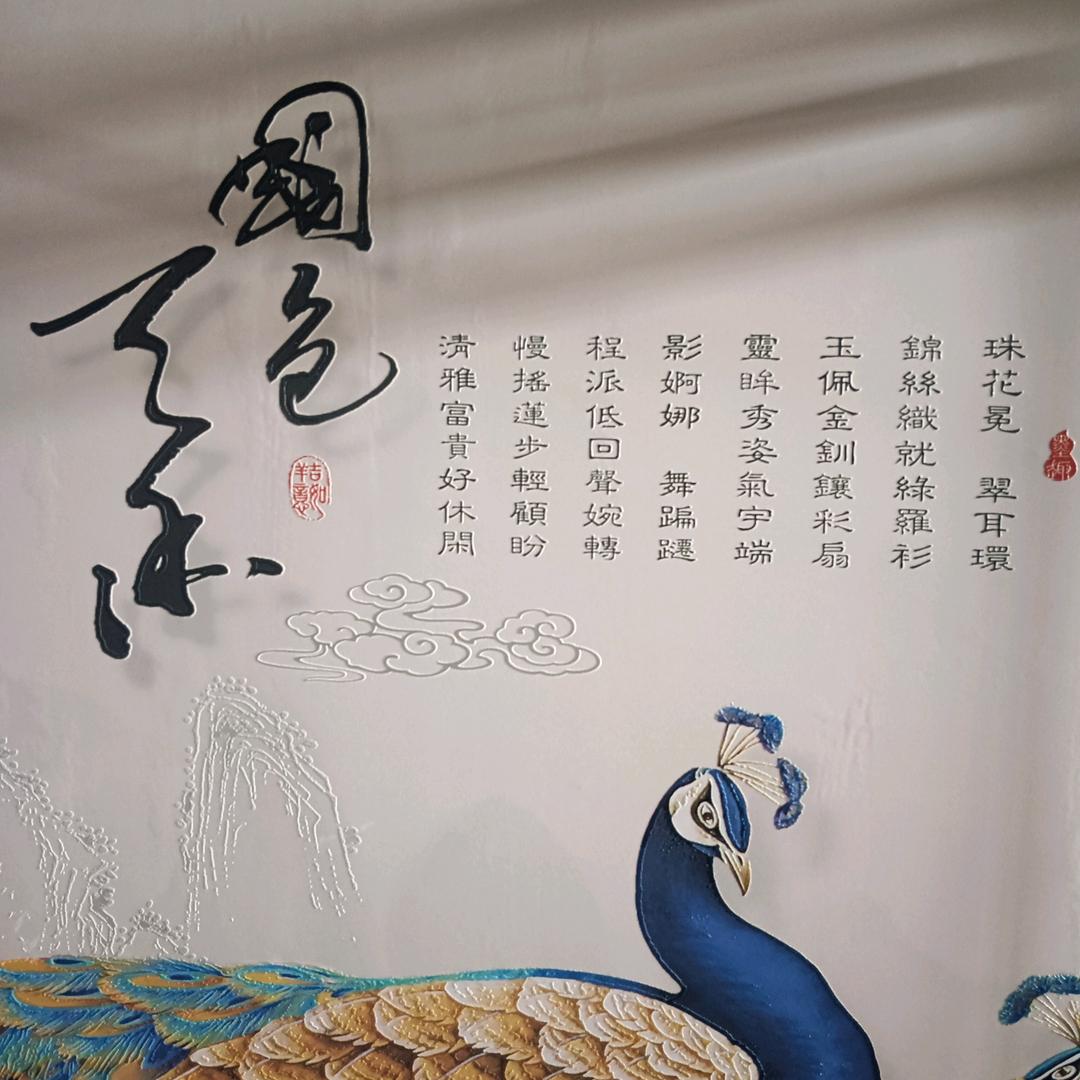 珠花冕 翠耳環
錦絲織就綠羅衫
玉佩金釧鑲彩扇
靈眸秀姿氣宇端
影婀娜 舞蹁躚
程派低回聲婉轉
慢搖蓮步輕顧盼
清雅富貴好休閑
國色
天香
吉如
祥意